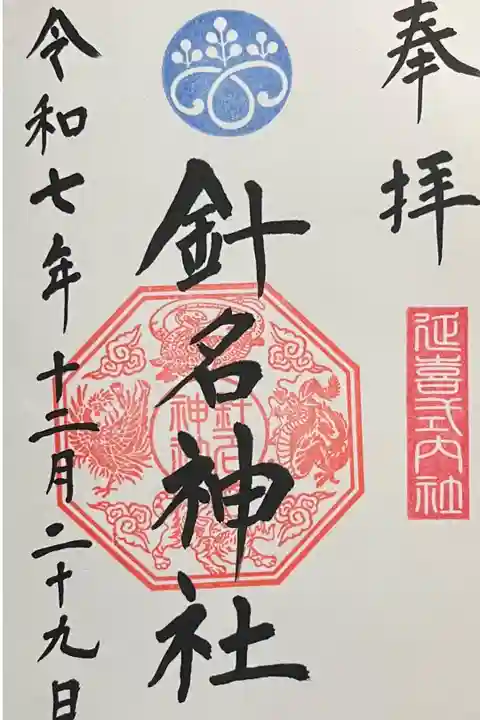 奉拝
延喜式内社
針名神社
針名神社
令和七年十二月二十九日